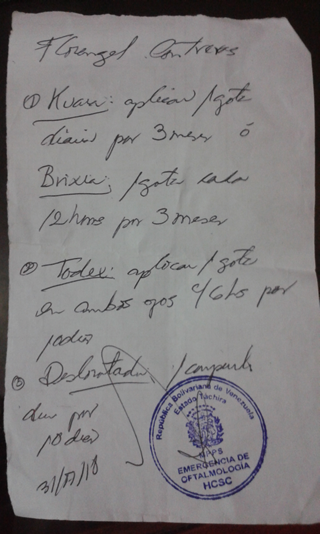 Florangel Contreras
① Kuan: aplicar 1 gota
diario por 3 meses ó
Brixia: 1 gota cada
12 hors por 3 meses
② Todex: aplicar 1 gota
en ambos ojos c/6hs por
10 dias
③ Desloratadina 1 comprimido
diario por
10 dias
República Bolivariana de Venezuela
Estado Táchira
EMERGENCIA DE
OFTALMOLOGIA
HCSC